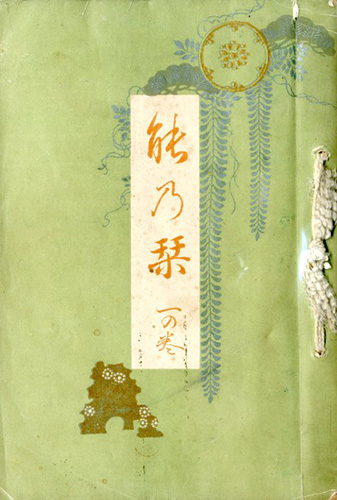 能乃栞
一の巻